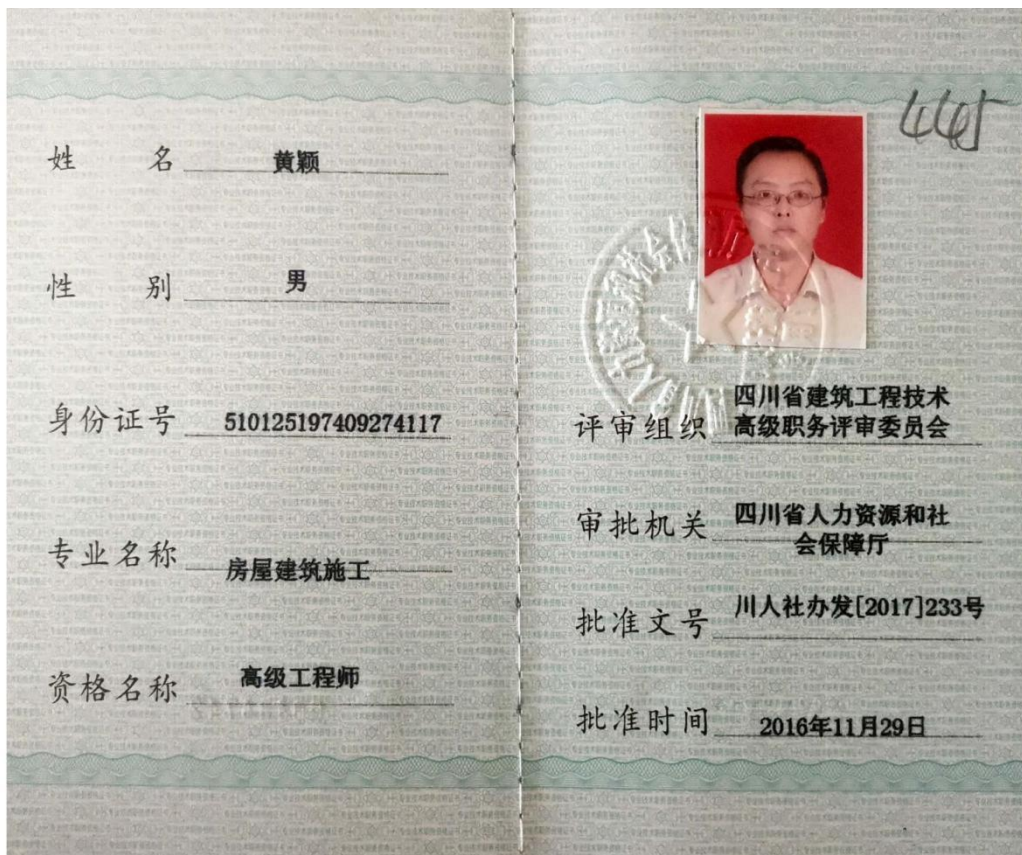 姓名 黄颖
性别 男
身份证号 510125197409274117
专业名称 房屋建筑施工
资格名称 高级工程师
445
评审组织 四川省建筑工程技术
高级职务评审委员会
审批机关 四川省人力资源和社
会保障厅
批准文号 川人社办发[2017]233号
批准时间 2016年11月29日